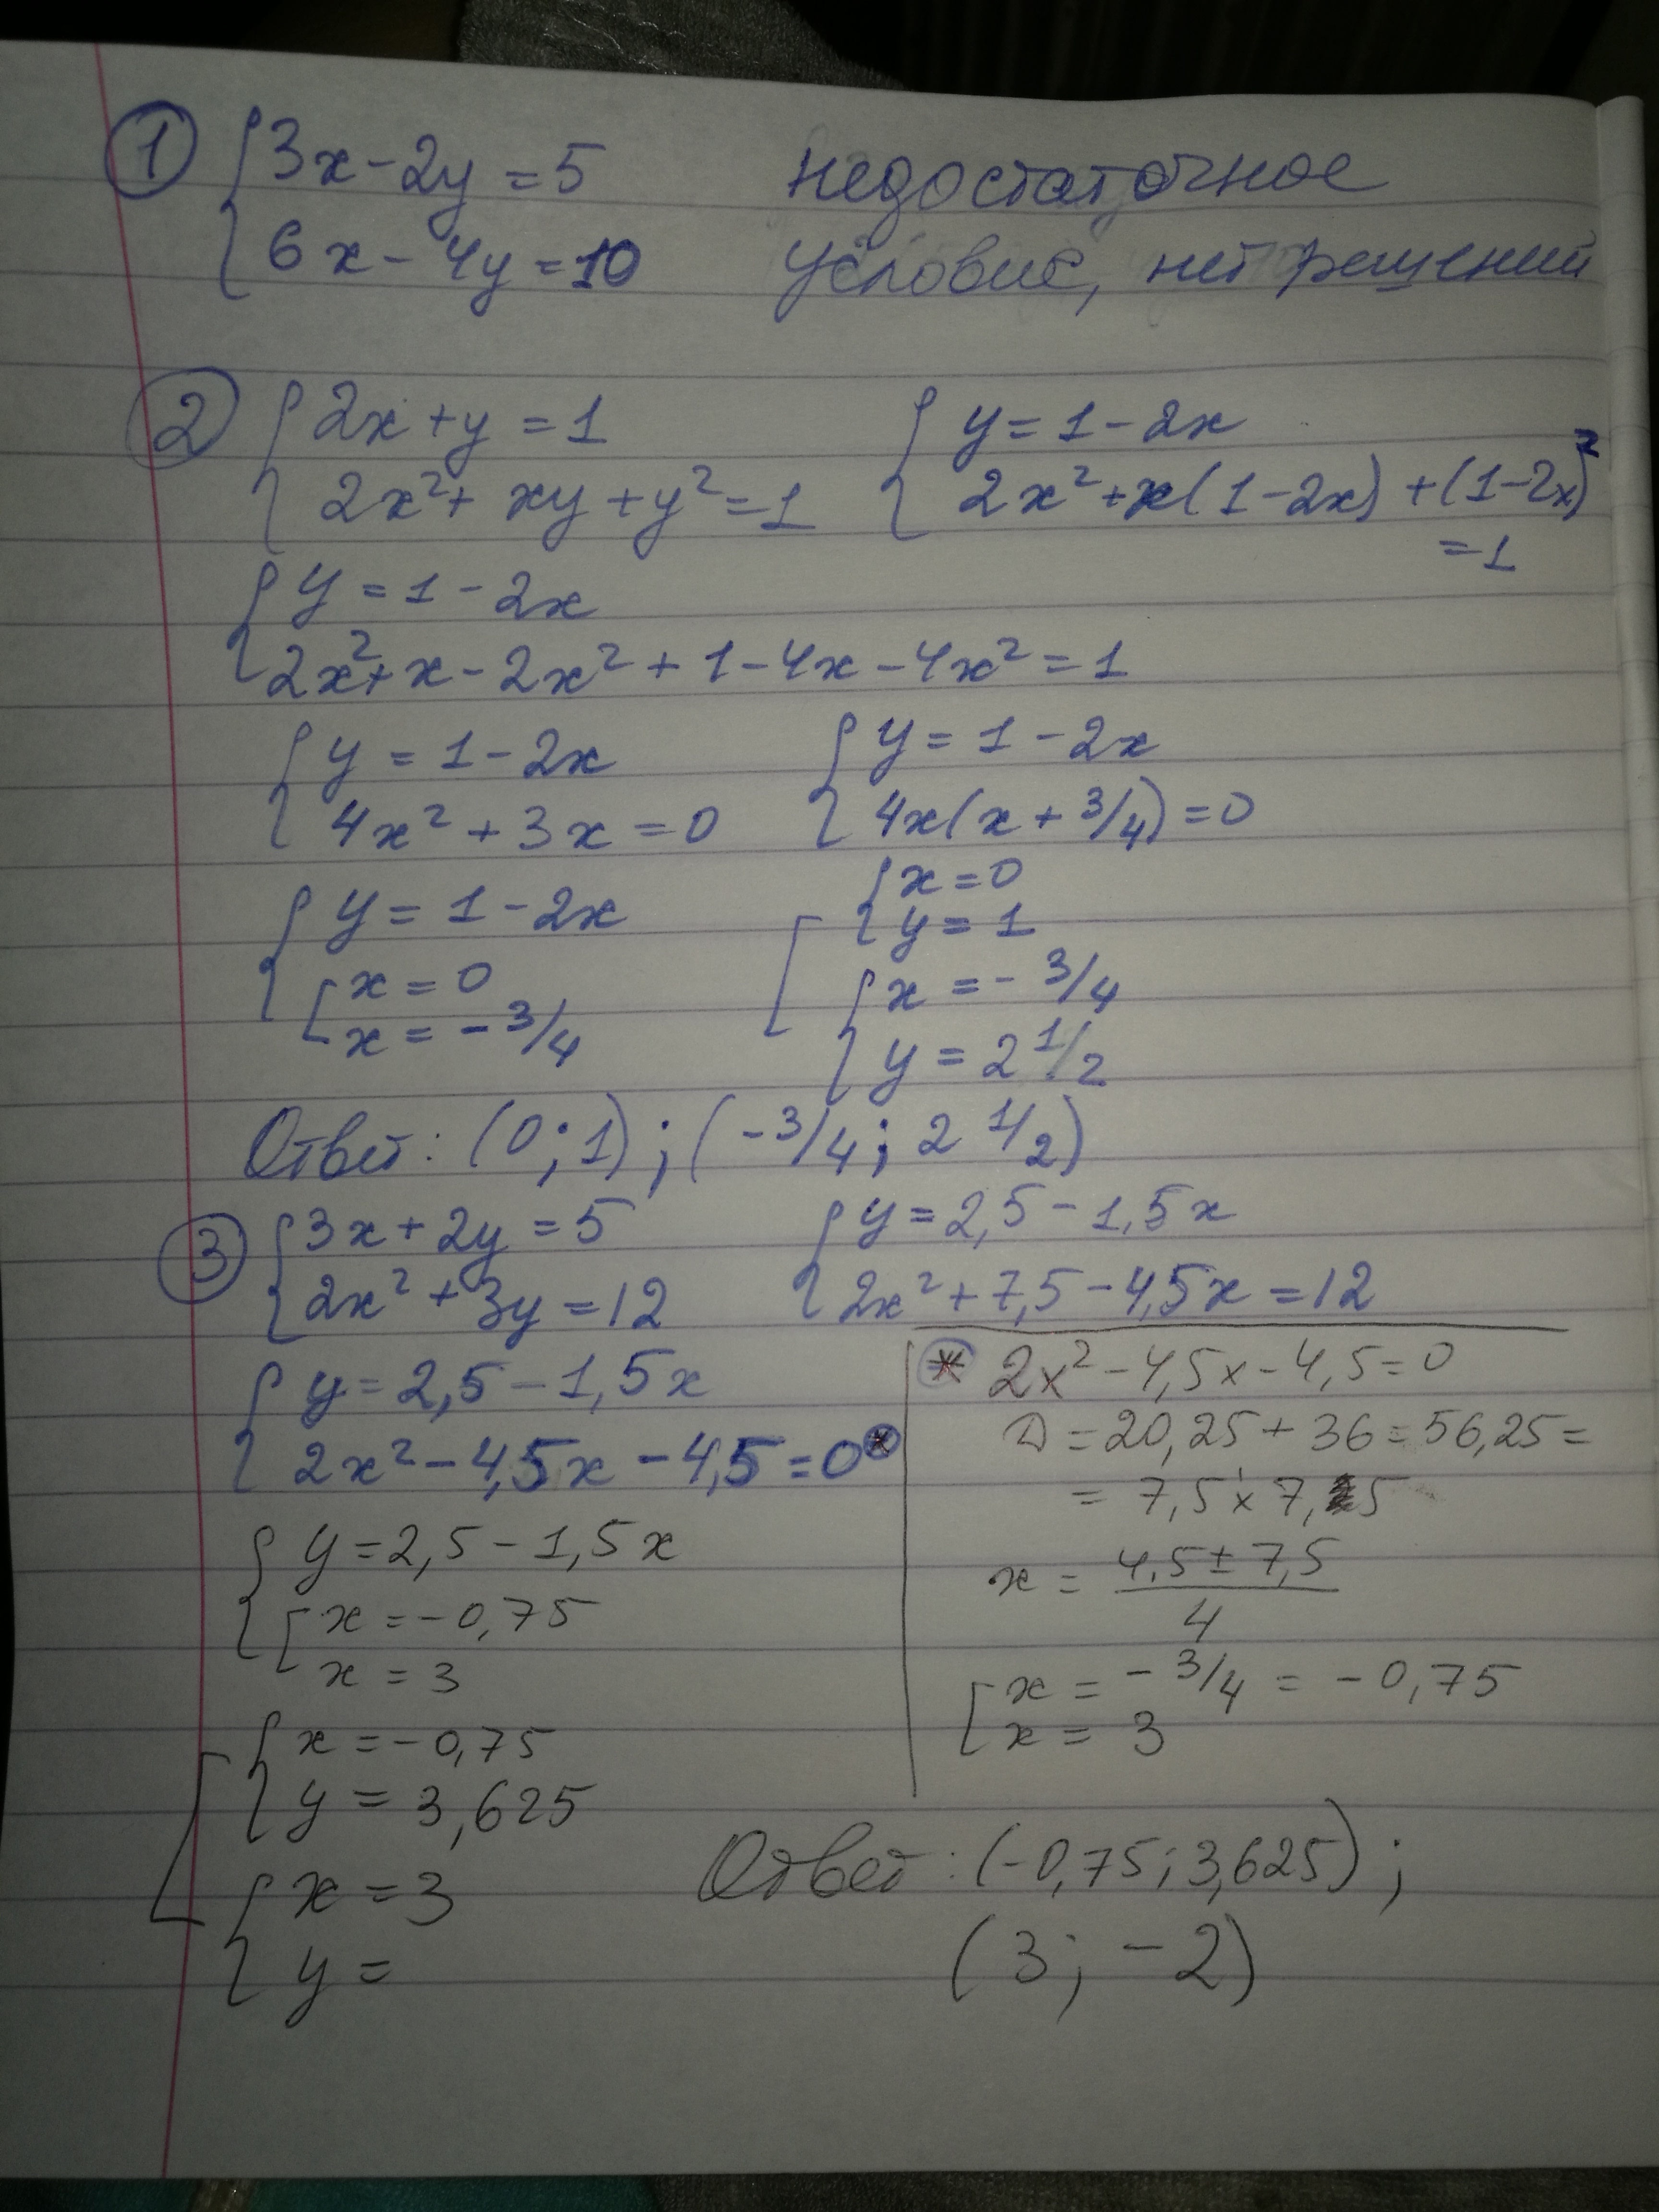 ① { 3x - 2y = 5 недостаточное
{ 6x - 4y = 10 условие, нет решений
② { 2x + y = 1 { y = 1 - 2x
{ 2x² + xy + y² = 1 { 2x² + x(1-2x) + (1-2x)²
= 1
{ y = 1 - 2x
{ 2x² + x - 2x² + 1 - 4x - 4x² = 1
{ y = 1 - 2x { y = 1 - 2x
{ 4x² + 3x = 0 { 4x(x + 3/4) = 0
{ y = 1 - 2x
[ x = 0
[ x = - 3/4
[ { x = 0
{ y = 1
{ x = - 3/4
{ y = 2 1/2
Ответ: (0; 1); (- 3/4; 2 1/2)
③ { 3x + 2y = 5 { y = 2,5 - 1,5x
{ 2x² + 3y = 12 { 2x² + 7,5 - 4,5x = 12
{ y = 2,5 - 1,5x
{ 2x² - 4,5x - 4,5 = 0 *
{ y = 2,5 - 1,5x
[ x = -0,75
[ x = 3
[ { x = -0,75
{ y = 3,625
{ x = 3
{ y =
* 2x² - 4,5x - 4,5 = 0
D = 20,25 + 36 = 56,25 =
= 7,5 × 7,5
x = 4,5 ± 7,5
4
[ x = - 3/4 = -0,75
[ x = 3
Ответ: (-0,75; 3,625);
(3; -2)